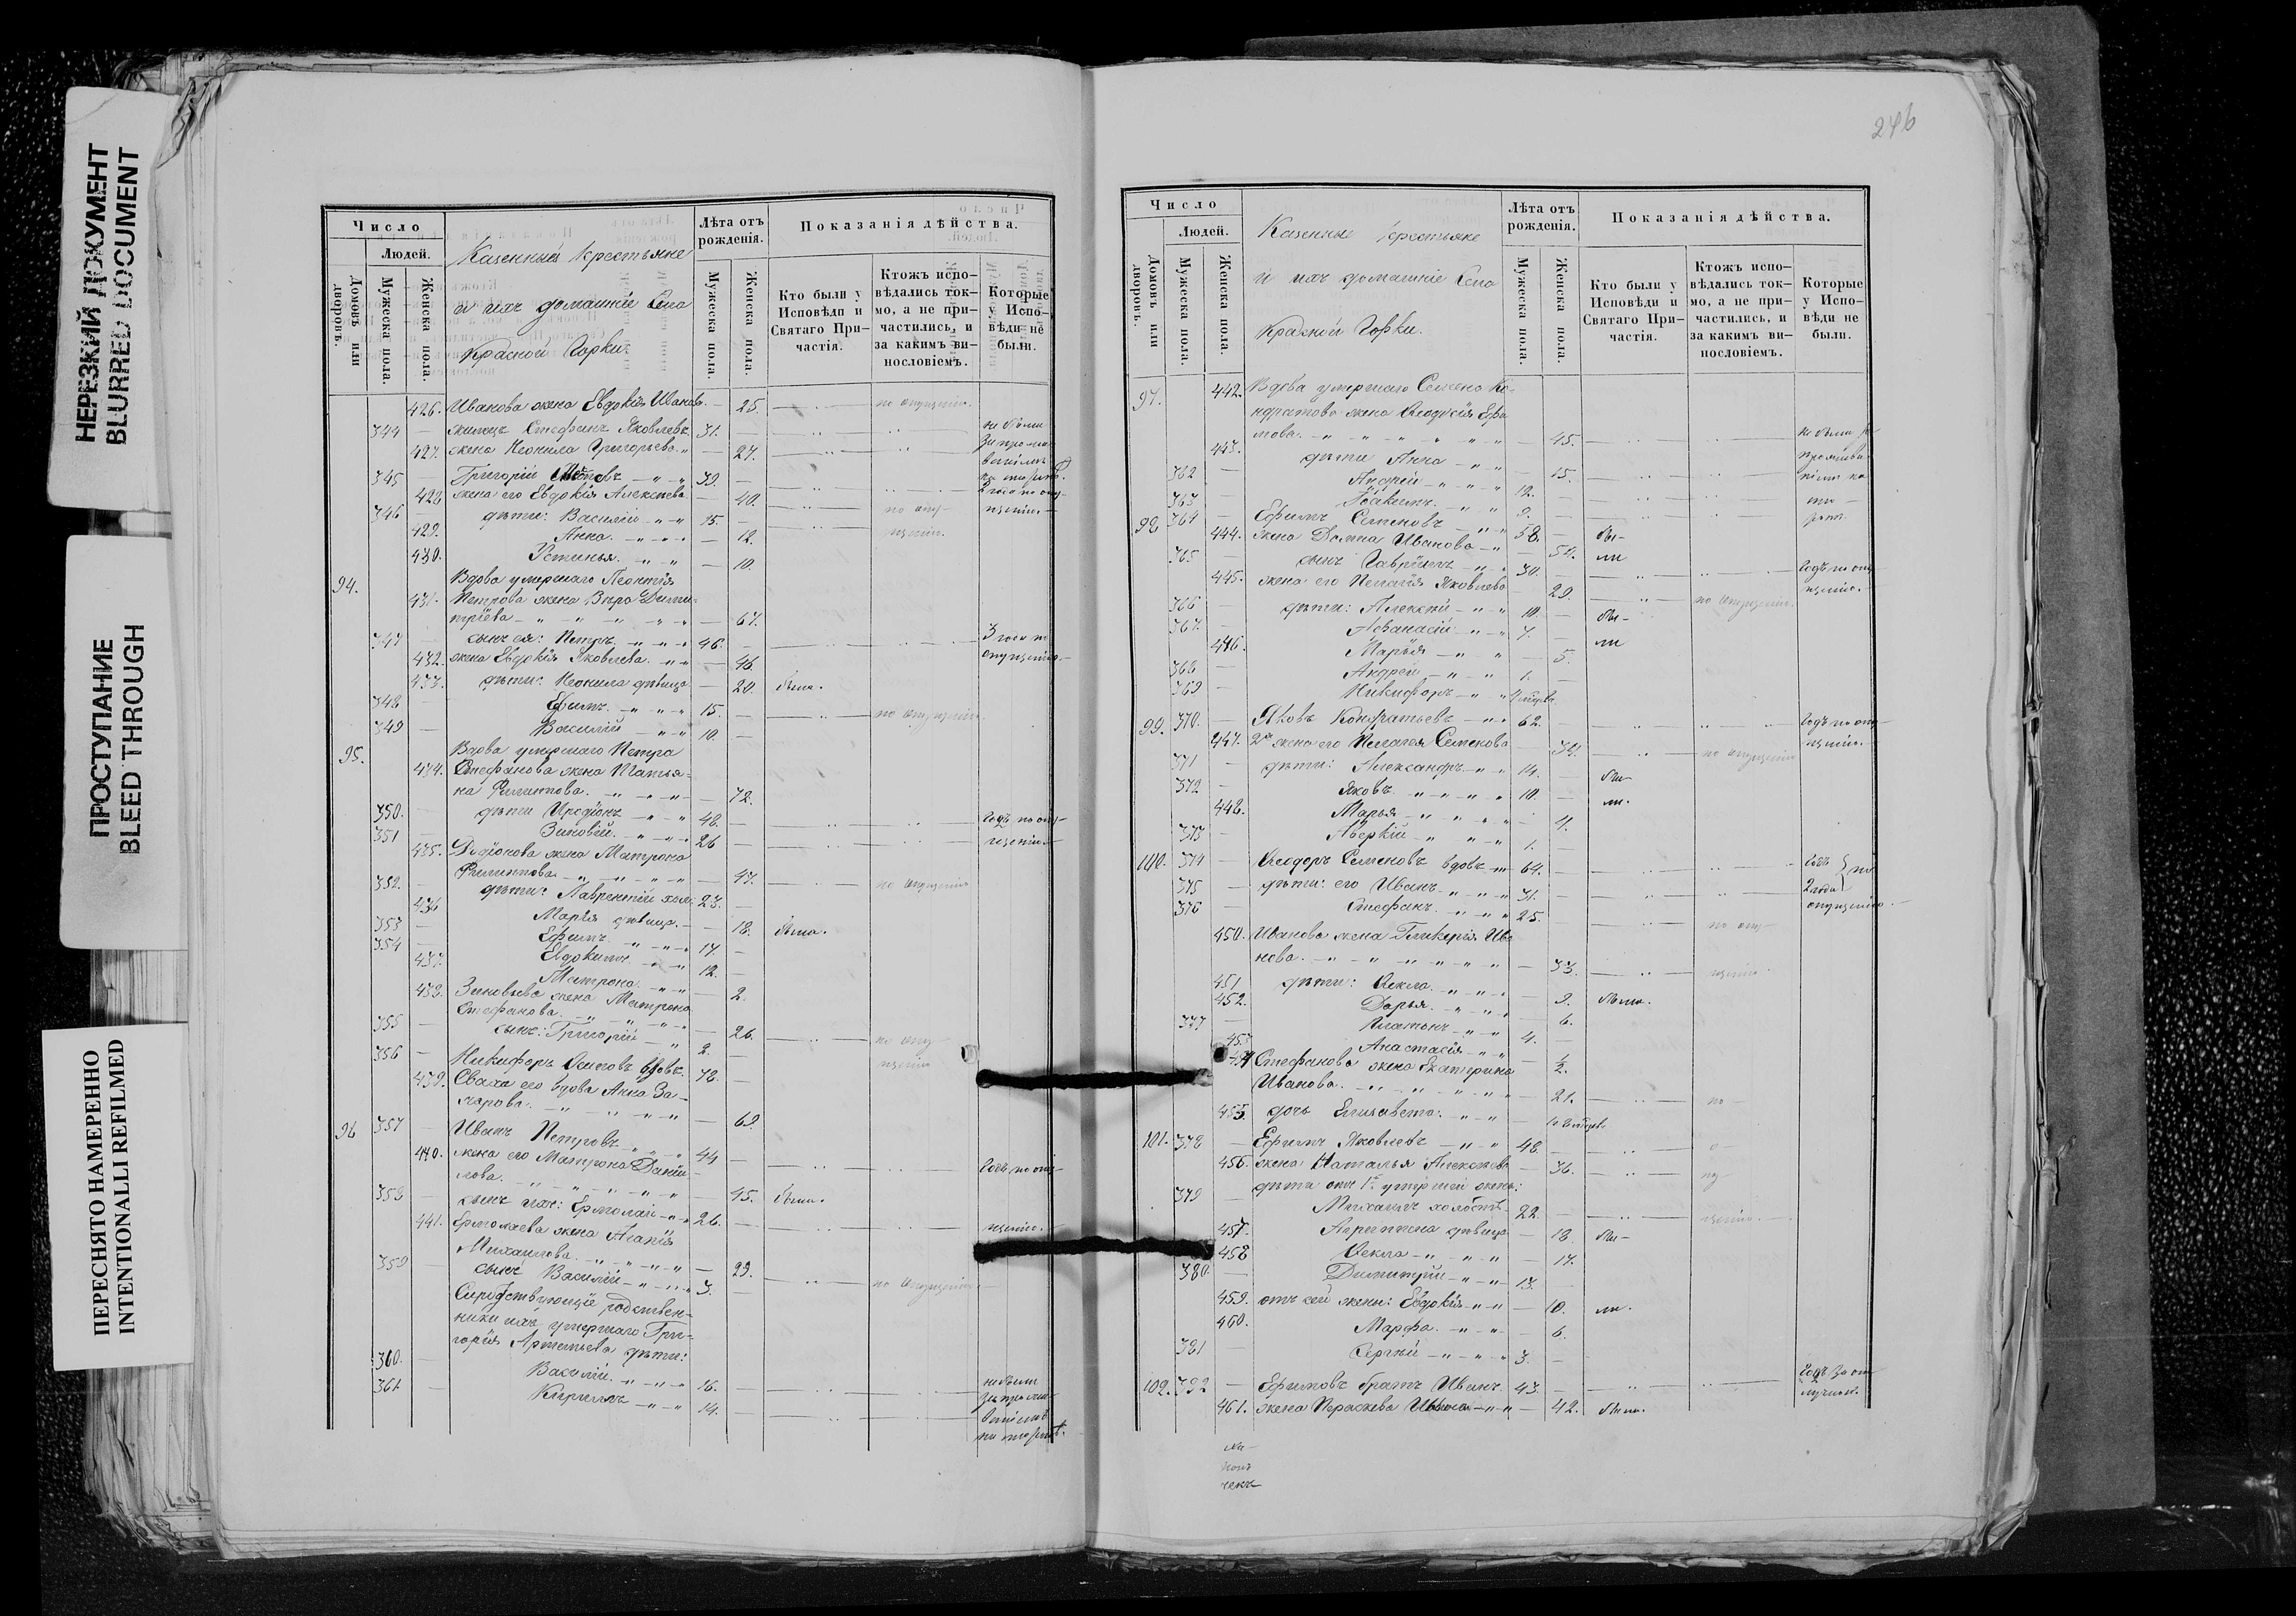 НЕРЕЗКИЙ ДОКУМЕНТ
BLURRED DOCUMENT
ПРОСТУПАНИЕ
BLEED THROUGH
ПЕРЕСНЯТО НАМЕРЕННО
INTENTIONALLI REFILMED
Число
Людей.
Домовъ или дворовъ.
Мужеска пола.
Женска пола.
Казенный крестьяне
и ихъ домашніе Села
Красной Горки.
Лѣта отъ рожденія.
Мужеска пола.
Женска пола.
Показанія дѣйства.
Кто были у Исповѣди и Святаго При-частія.
Ктожъ испо-вѣдались ток-мо, а не при-частились, и за какимъ ви-нословіемъ.
Которые у Испо-вѣди не были.
426. Иванова жена Евдокія Иванов. — 25. по опущенію.
344 — жилецъ Стефанъ Яковлевъ. 31. — не были
427. жена Неонила Григорьева — 27. за прожи-
345 — Григорій 39. —
428 жена его Евдокія Алексѣева — 40. 2 года по опу-
346 — дѣти: Василій 15. — по опу- щенію.
429. Анна. — 12. щенію.
430. Устинья. — 10.
94. Вдова умершаго Леонтія
431. Петрова жена Вѣра Дими-
тріева — 67.
347 — сынъ ея: Петръ 46. — 3 года по
432. жена Евдокія Яковлева. — 46. опущенію
433. дѣти: Неонила дѣвица — 20. была.
348 — Ефимъ. 15. — по опущенію
349 — Василій 10. —
95. Вдова умершаго Петра
434. Стефанова жена Татья-
на Филиппова. — 72.
350. — дѣти Иродіонъ 48. — Годъ по опу-
351 — Зиновій. 26 щенію.
435. Родіонова жена Матрона
Филиппова — 47. по опущенію
352. — дѣти: Лаврентій хол. 23. —
436 Марія дѣвица. — 18. была.
353 — Ефимъ 17. —
354 — Евдокимъ 12. —
437. Матрона. — 2.
438. Зиновьева жена Матрона
Стефанова. — 26. по опу-
355 — сынъ: Григорій 2. — щенію
356 — Никифоръ Осиповъ вдовъ. 72. —
439. Сваха его вдова Анна За-
харова. — 69.
96 357 — Иванъ Петровъ 44 —
440. жена его Матрона Даніи- Годъ по опу-
лова. — 45. была.
358 — сынъ ихъ: Ермолай 26. — щенію.
441. Ермолаева жена Агапія
Михаилова. — 29. по опущенію
359 — сынъ Василій 3. —
Сиротствующіе родствен-
ники ихъ умершаго Гри-
горія Артемьева дѣти:
360. — Василій. 16. — не были
361 — Кириллъ 14. — за прожи-
ваніемъ
на сторонѣ.
246
Число
Людей.
Домовъ или дворовъ.
Мужеска пола.
Женска пола.
Казенные крестьяне
и ихъ домашніе Села
Красной Горки.
Лѣта отъ рожденія.
Мужеска пола.
Женска пола.
Показанія дѣйства.
Кто были у Исповѣди и Святаго При-частія.
Ктожъ испо-вѣдались ток-мо, а не при-частились, и за какимъ ви-нословіемъ.
Которые у Испо-вѣди не были.
97. 442. Вдова умершаго Семена Ко-
ндратова жена Ѳеодосія Ефи
мова. — 45. не были за
443. дѣти Анна — 15. прожива-
362 — Андрей 12. — ніемъ на
363 — Іоакимъ. 9. — сто-
98 364 — Ефимъ Семеновъ 58. — бы-
444. жена Домна Иванова — 50. ли
365 — сынъ Гавріилъ 30. — Годъ по опу
445. жена его Пелагія Яковлева — 29. по опущенію. щенію.
366 — дѣти: Алексѣй 10. — бы-
367. — Аѳанасій 7. — ли
446. Марья — 5.
368 — Андрей 1. —
369 — Никифоръ
99. 370. — Яковъ Кондратьевъ 62. — Годъ по опу
447. 2я жена его Пелагея Семенова — 34. по опущенію щенію.
371 — дѣти: Александръ 14. — бы-
372 — Яковъ. 10. — ли.
448. Марья — 4.
373 — Аверкій 1. —
100. 374 — Ѳеодоръ Семеновъ вдовъ 64. — Годъ по
375 — дѣти: его Иванъ 31. — 2 года
376 — Стефанъ. 25. — опущенію.
450. Иванова жена Гликерія Ива по опу-
нова. — 33. щенію.
451 дѣти: Ѳекла. — 9. были.
452. Дарья. — 6.
377 — Платонъ 4. —
453 Анастасія — 1/2.
454 Стефанова жена Екатерина
Иванова. — 21. по
455 дочь Елисавета.
101. 378 — Ефимъ Яковлевъ 48. — о-
456. жена Наталья Алексѣева — 36. пу
дѣти отъ 1й умершей жены:
379 — Михаилъ холостъ 22. — щенію.
457. Агриппина дѣвица — 18. бы-
458 Ѳекла — 17.
380. — Димитрій 13. —
459. отъ сей жены: Евдокія — 10. ли.
460. Марѳа. — 6.
381 — Сергѣй 3. —
102. 382 — Ефимовъ братъ Иванъ. 43. — Годъ за от
461. жена Параскева Иванова — 42. была. лучкой.